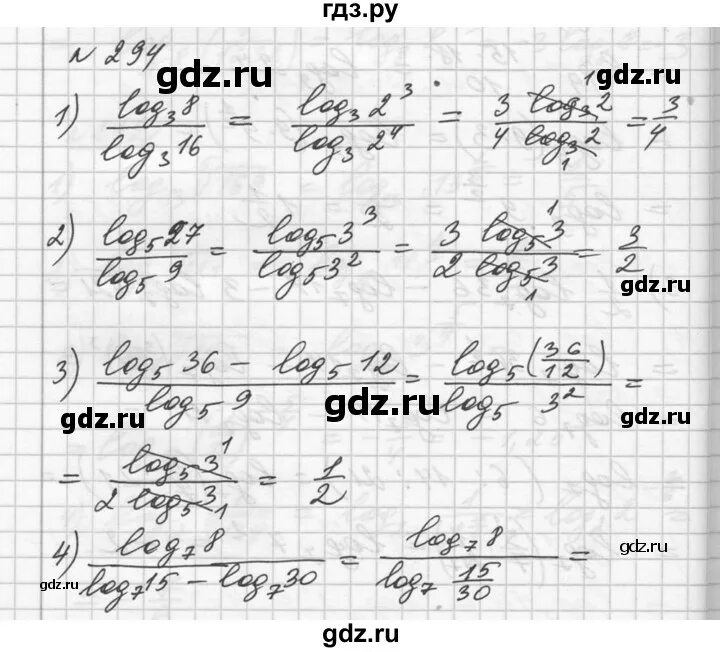 гдз.ру
№ 294
gdz.ru
gdz.ru
1) log₃8 / log₃16 = log₃2³ / log₃2⁴ = 3 log₃2 / 4 log₃2 = 3/4
1
1
gdz.ru
2) log₅27 / log₅9 = log₅3³ / log₅3² = 3 log₅3 / 2 log₅3 = 3/2
1
1
gdz.ru
3) log₅36 − log₅12 / log₅9 = log₅(36/12) / log₅3² =
gdz.ru
gdz.ru
gdz.ru
= log₅3 / 2 log₅3 = 1/2
1
1
4) log₇8 / log₇15 − log₇30 = log₇8 / log₇ 15/30 =
gdz.ru
gdz.ru
gdz.ru
gdz.ru